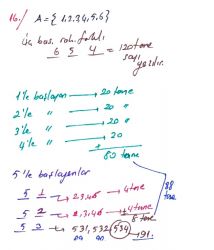 16./ A={1,2,3,4,5,6}
üç bas. rak. farklı.
6 5 4 = 120 tane
sayı
yazılır.
1'le başlayan → 20 tane
2'le " → 20 "
3'le " → 20 "
4'le " → 20
+
80 tane
5'le başlayanlar
5 1 → 2,3,4,6 → 4 tane
5 2 → 1,3,4,6 → 4 tane
8 tane
88
tane
5 3 → 531, 532, 534
89 90 91.